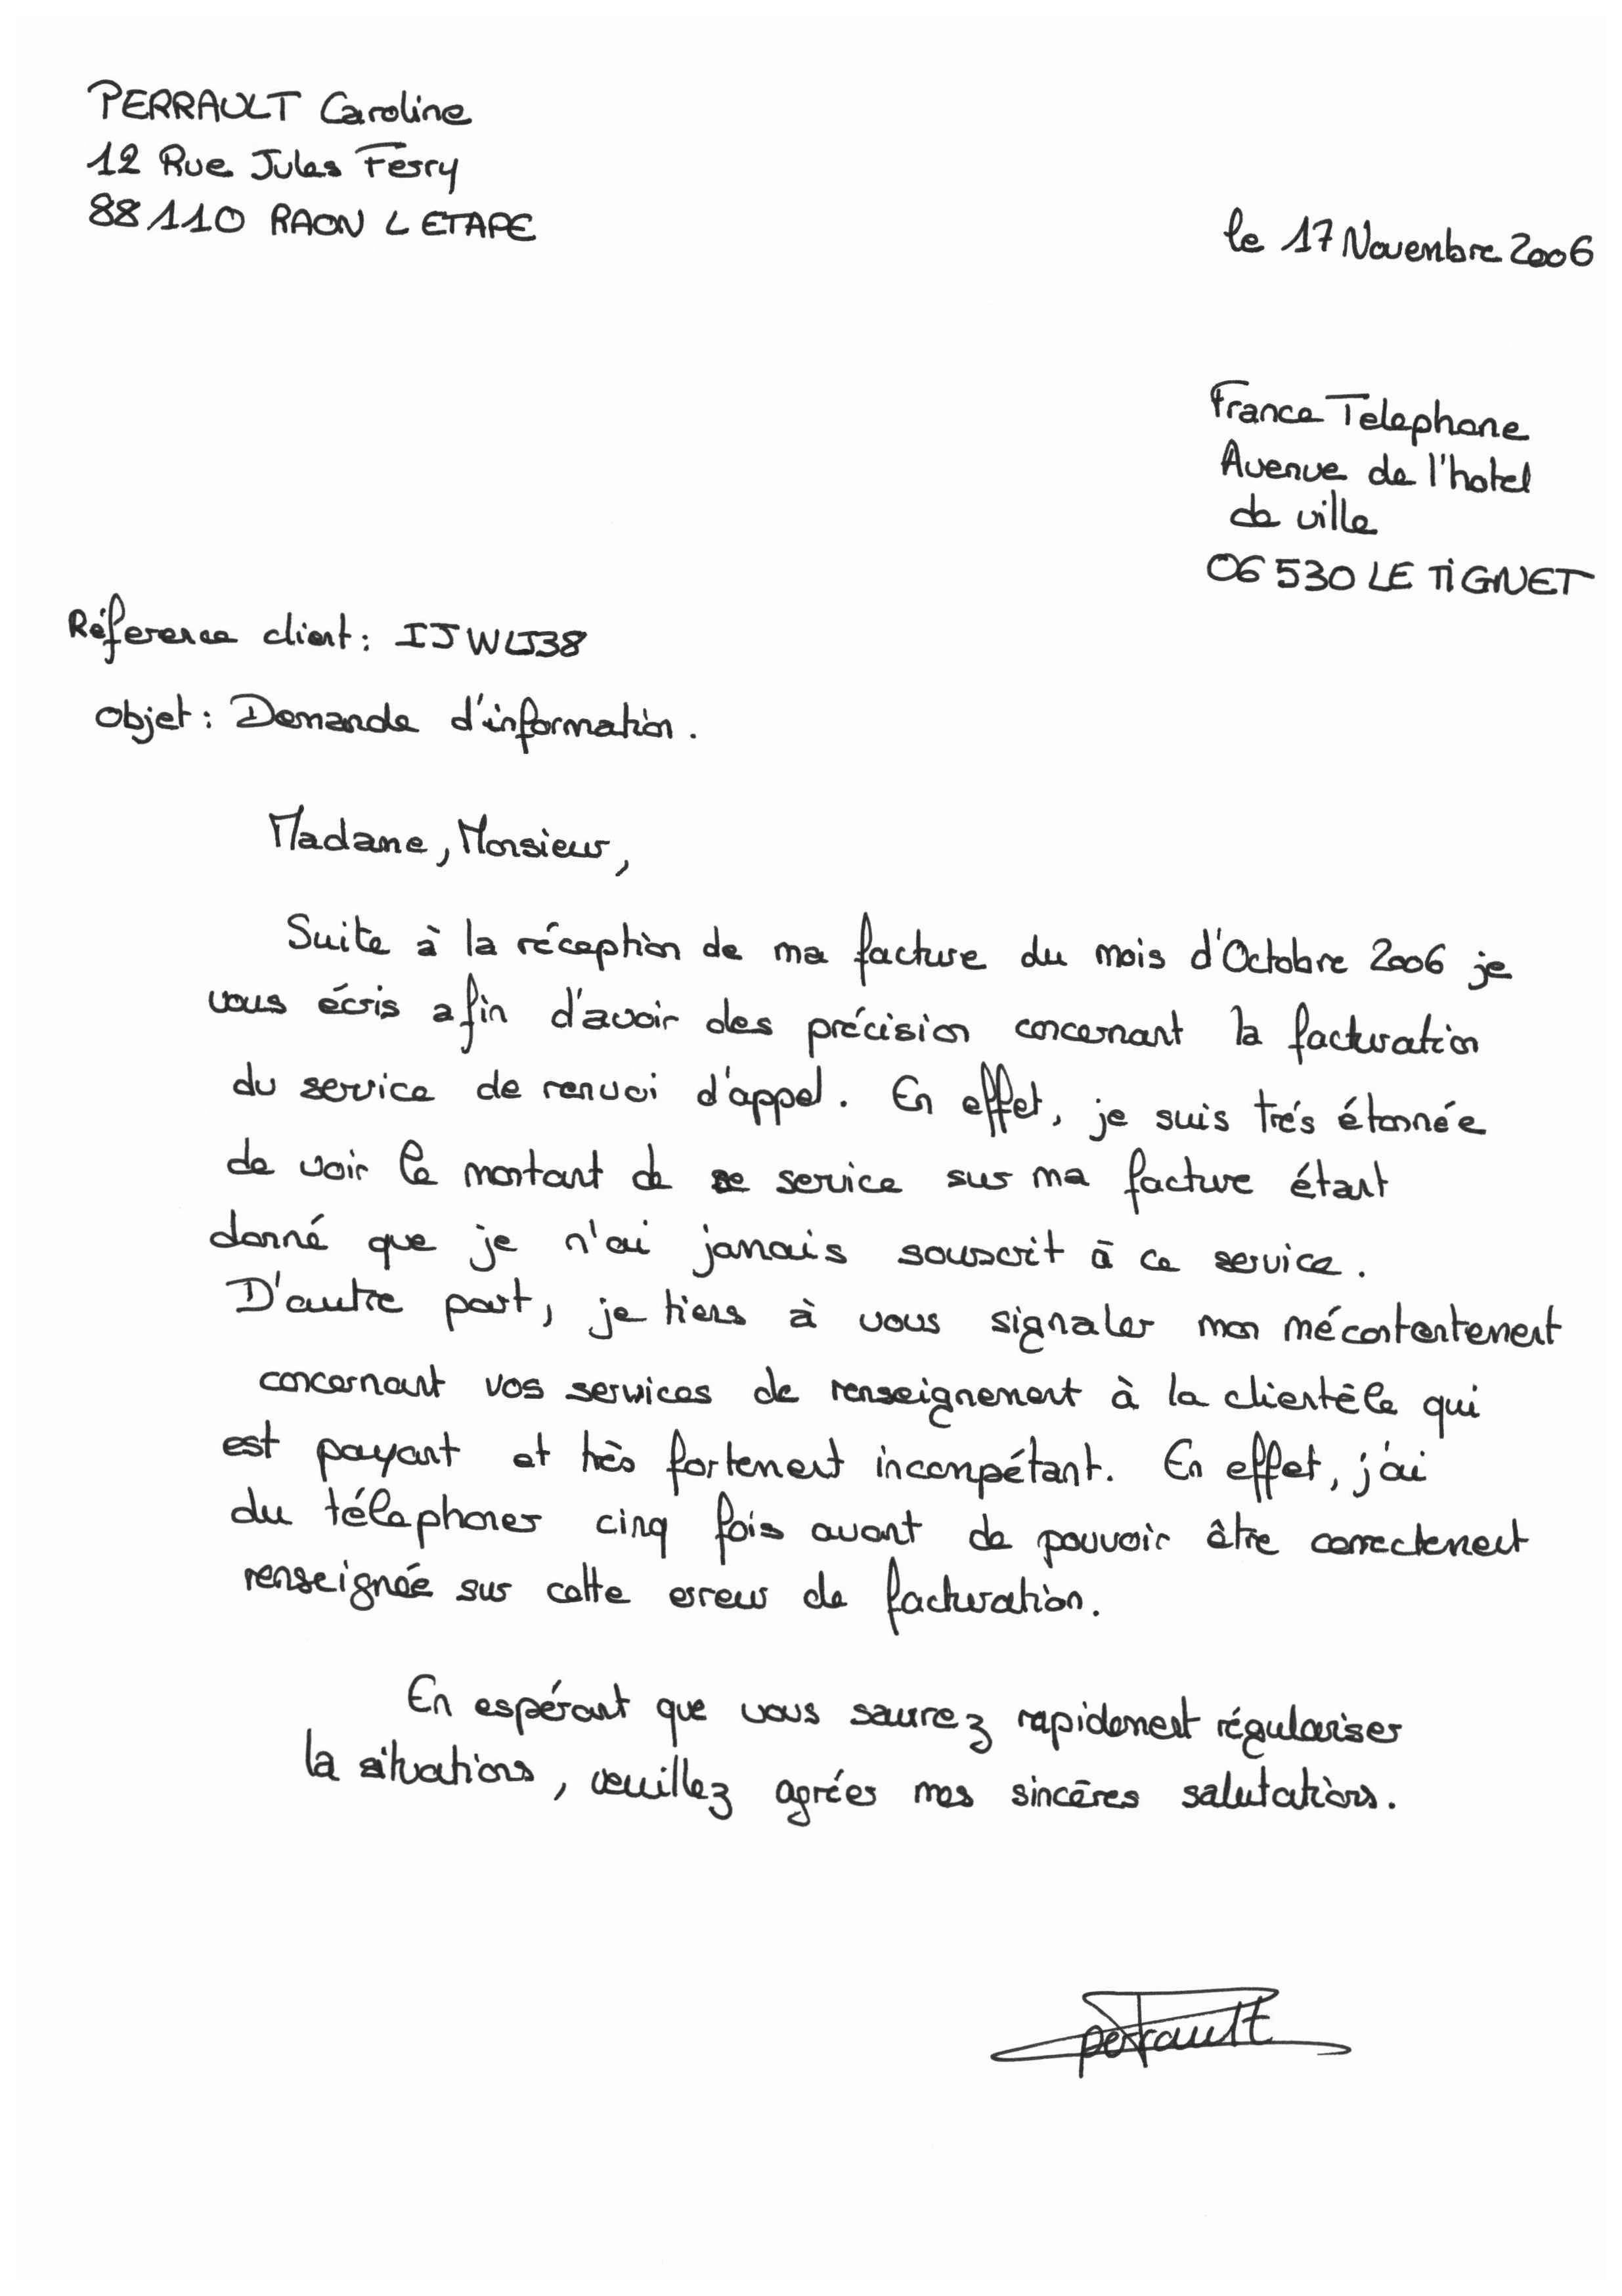 PERRAULT Caroline
12 Rue Jules Ferry
88110 RAON L ETAPE
le 17 Novembre 2006
France Telephone
Avenue de l'hotel
de ville
06 530 LE TIGNET
Réference client : IJWLJ38
Objet : Demande d'information.
Madame, Monsieur,
Suite à la réception de ma facture du mois d'Octobre 2006 je
vous écris afin d'avoir des précision concernant la facturation
du service de renvoi d'appel. En effet, je suis trés étonnée
de voir le montant de se service sur ma facture étant
donné que je n'ai jamais souscrit à ce service.
D'autre part, je tiens à vous signaler mon mécontentement
concernant vos services de renseignement à la clientèle qui
est payant et très fortement incompétant. En effet, j'ai
du téléphoner cinq fois avant de pouvoir être correctement
renseignée sur cette erreur de facturation.
En espérant que vous saurez rapidement régulariser
la situations, veuillez agréer mes sincères salutations.
perrault